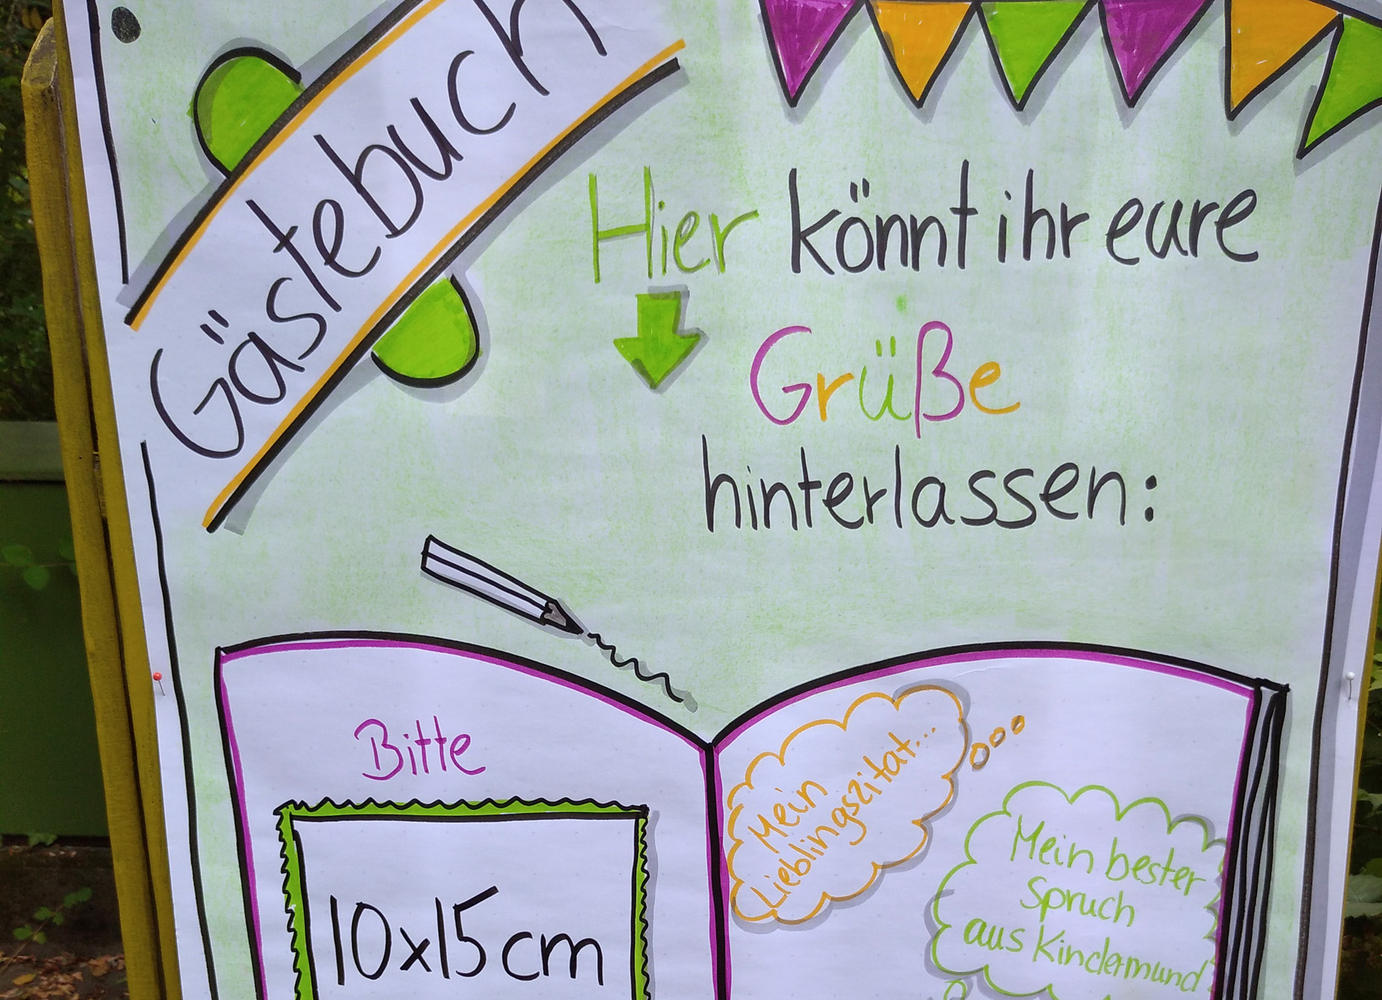 Gästebuch
Hier könnt ihr eure
Grüße
hinterlassen:
Bitte
10x15cm
Mein
Lieblingszitat...
Mein bester
Spruch
aus Kindermund